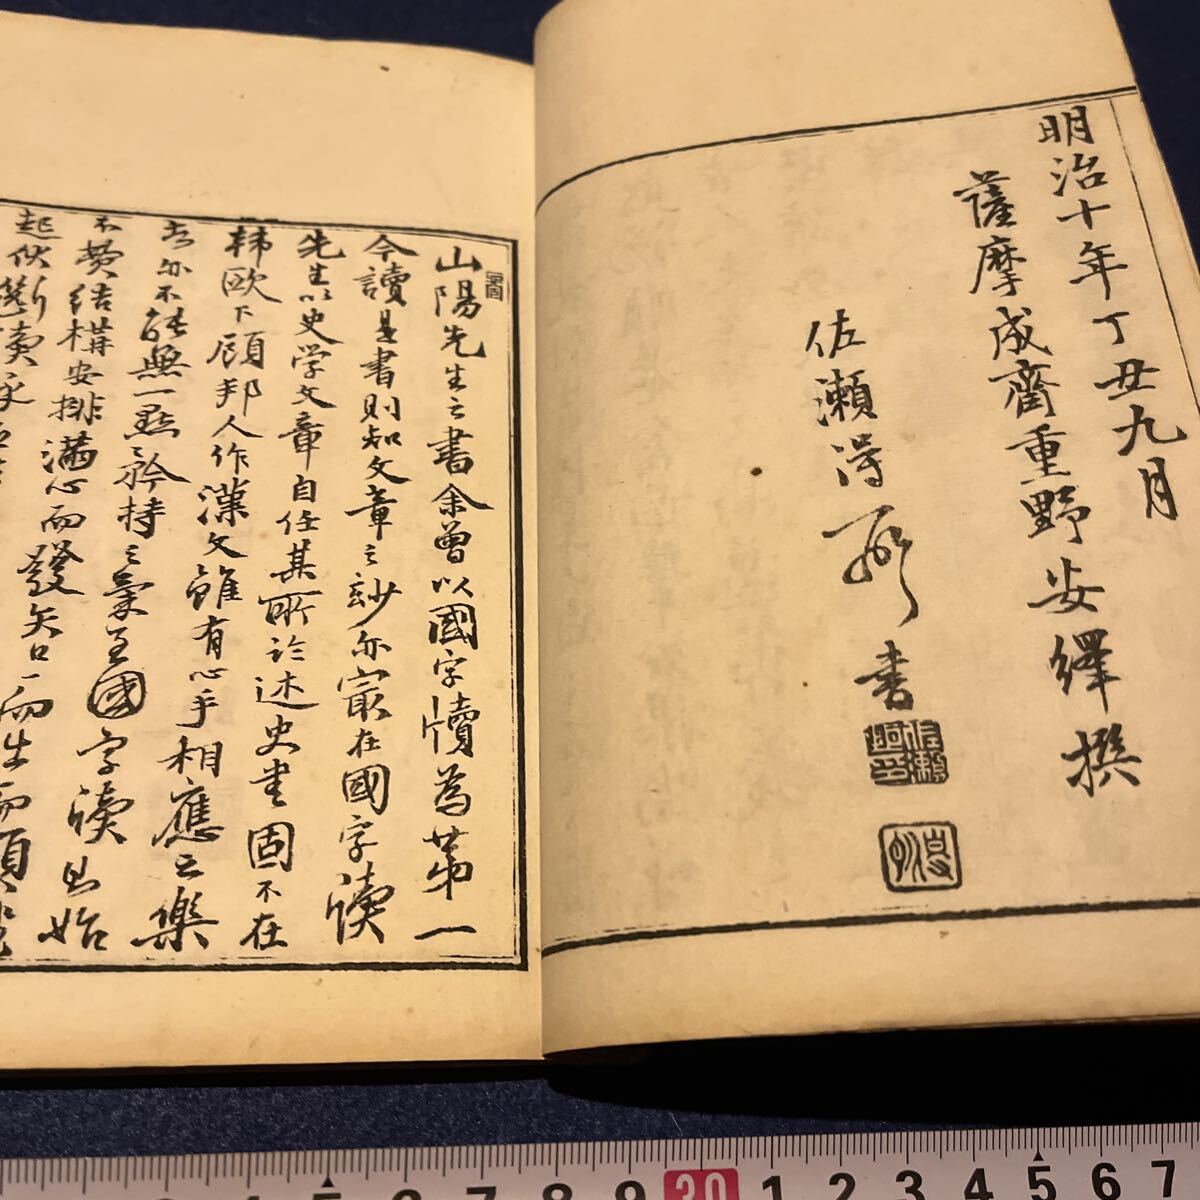 明治十年丁丑九月
薩摩成齋重野安繹撰
佐瀬得所書
山陽先生之書余曾以國字牘為第一
今讀是書則知文章之妙亦最在國字牘
先生以史學文章自任其所論述史書固不在
韓歐下顧邦人作漢文雖有心手相應之樂
亦不能無一點矜持之氣至國字牘則始
不費結構安排滿心而發矢口而生
起伏
30 1 2 3 4 5 6 7